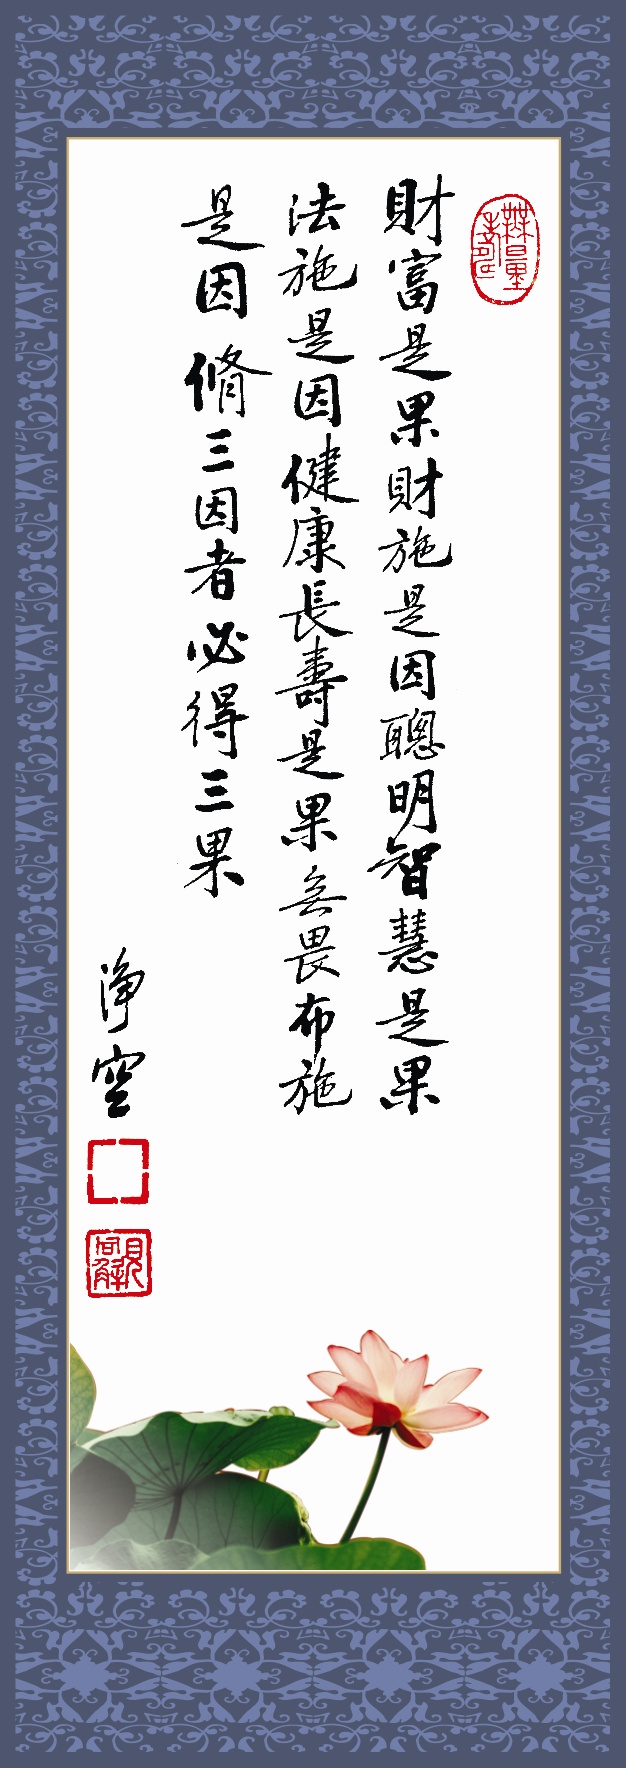 財富是果財施是因聰明智慧是果
法施是因健康長壽是果無畏布施
是因脩三因者必得三果
淨空